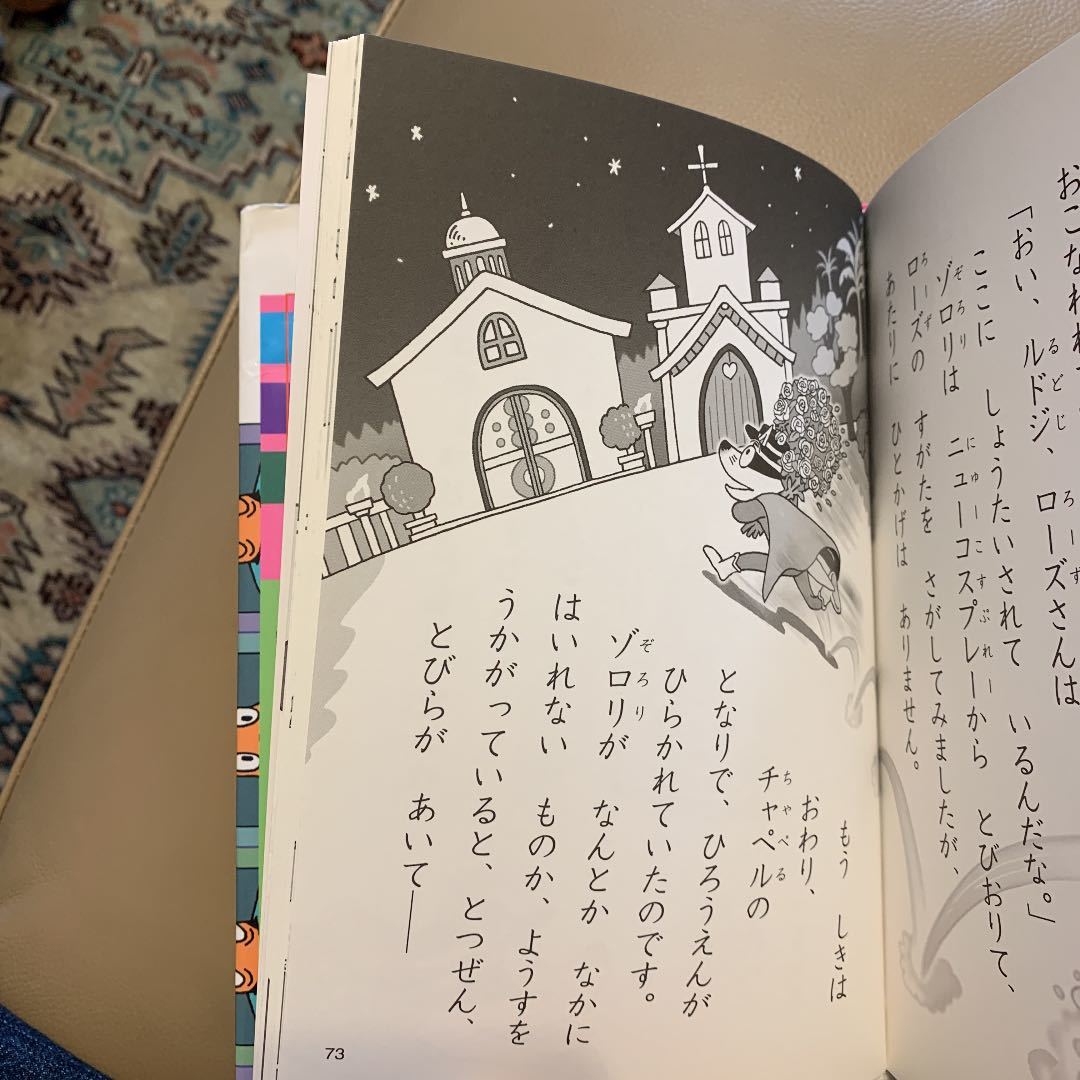 おこなわれ
「おい、ルドジ、ローズさんは
ここに しょうたいされて いるんだな。」
ゾロリは ニューコスプレーから とびおりて、
ローズの すがたを さがしてみましたが、
あたりに ひとかげは ありません。
もう しきは
おわり、
チャペルの
となりで、ひろうえんが
ひらかれていたのです。
ゾロリが なんとか なかに
はいれない ものか、ようすを
うかがっていると、とつぜん、
とびらが あいて——
73